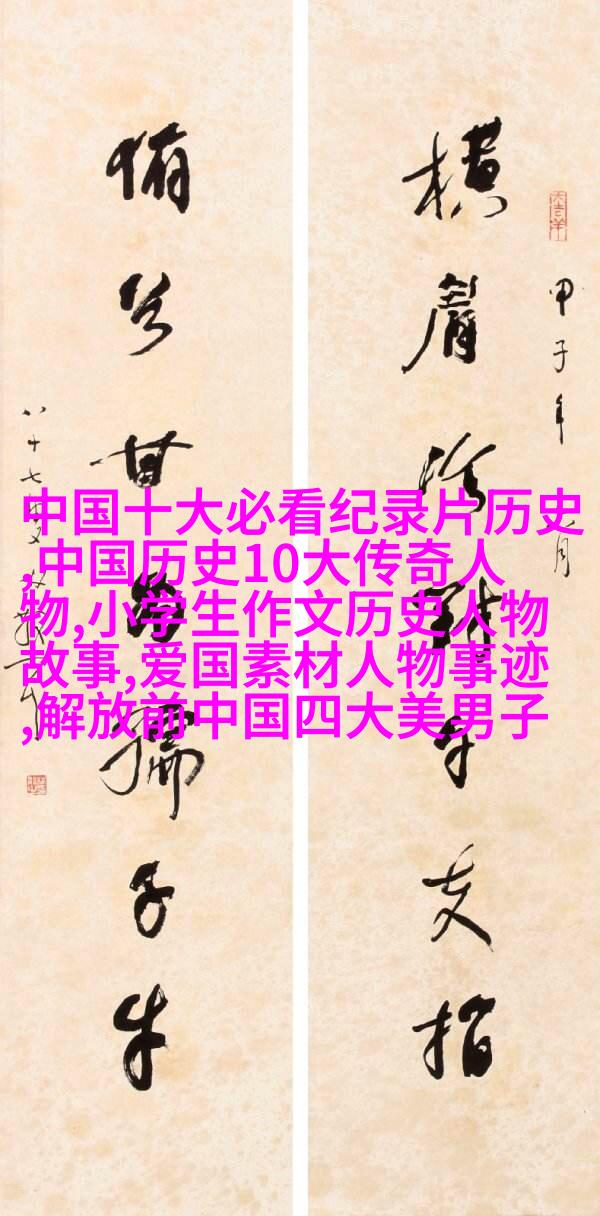 甲子年 月
横眉冷對千夫指
俯首甘為孺子牛
八十七叟
中国十大必看纪录片历史
,中国历史10大传奇人
物,小学生作文历史人物
故事,爱国素材人物事迹
,解放前中国四大美男子